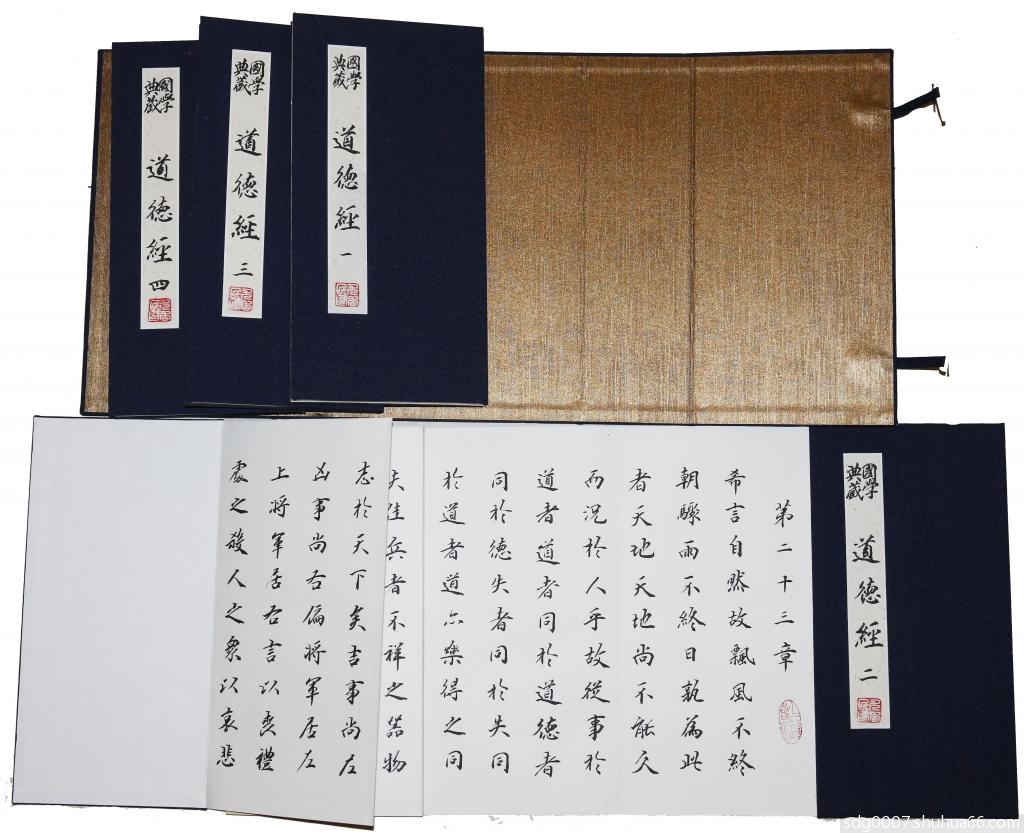 國学
典藏
道德經 一
國学
典藏
道德經 三
國学
典藏
道德經 四
國学
典藏
道德經 二
第二十三章
希言自然故飄風不終
朝驟雨不終日孰為此
者天地天地尚不能久
而況於人乎故從事於
道者道者同於道德者
同於德失者同於失同
於道者道亦樂得之同
夫佳兵者不祥之器物
志於天下矣吉事尚左
凶事尚右偏將軍居左
上將軍居右言以喪禮
處之殺人之衆以哀悲
sdg0007.shuhua66.com